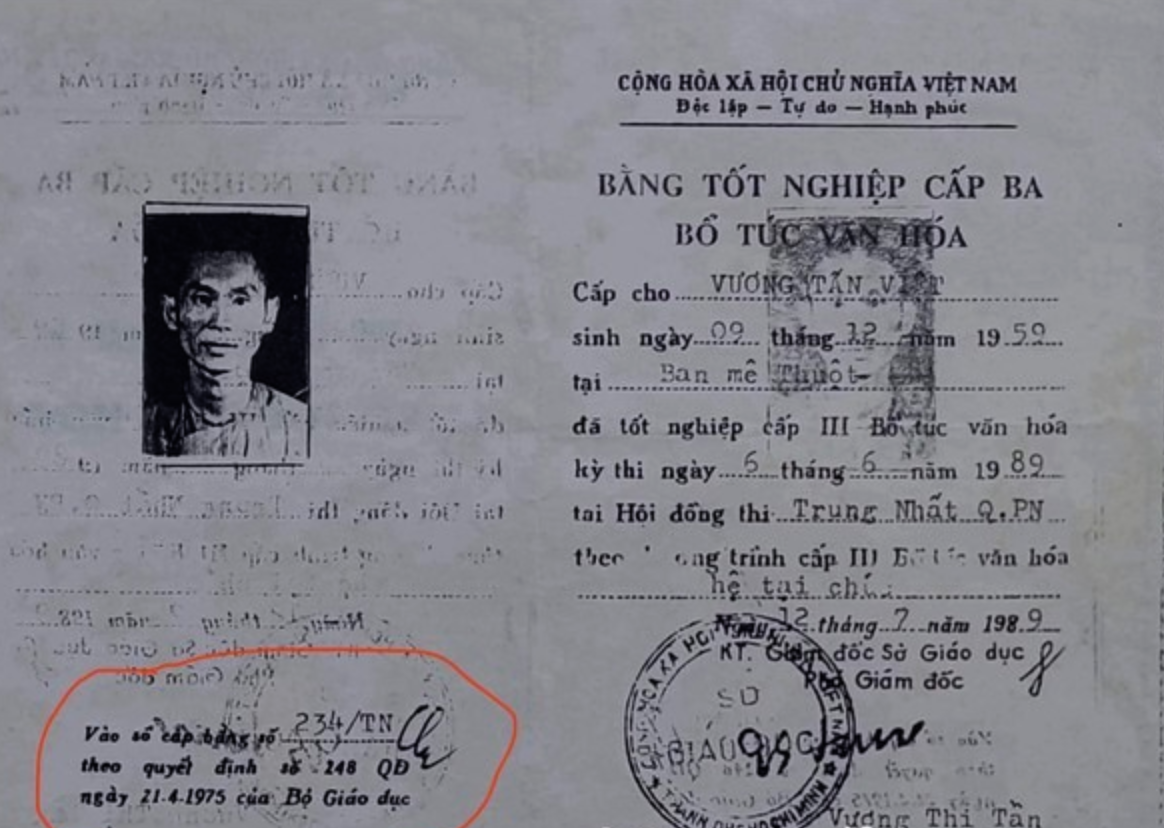 CỘNG HÒA XÃ HỘI CHỦ NGHĨA VIỆT NAM
Độc lập — Tự do — Hạnh phúc
BẰNG TỐT NGHIỆP CẤP BA
BỔ TÚC VĂN HÓA
Cấp cho VƯƠNG TẤN VIỆT
sinh ngày 09 tháng 12 năm 1959
tại Ban mê Thuột
đã tốt nghiệp cấp III Bổ túc văn hóa
kỳ thi ngày 6 tháng 6 năm 1989
tại Hội đồng thi Trung Nhất Q.PN
trình cấp III văn hóa
hệ tại
12 tháng 7 năm 1989
KT. Giám đốc Sở Giáo dục
Phó Giám đốc
SỞ
GIÁO DỤC
Vương Thị Tần
Vào sổ cấp bằng số 234/TN
theo quyết định số 248 QĐ
ngày 21.4.1975 của Bộ Giáo dục